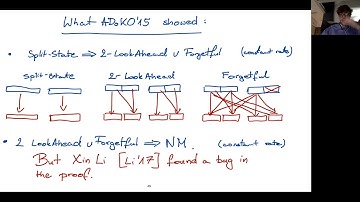 What ADKO'15 showed:
• Split-State ⇒ 2-LookAhead ∪ Forgetful (constant rate)
split-state 2-LookAhead Forgetful
• 2 LookAhead ∪ Forgetful ⇒ NM. (constant rate)
But Xin Li [Li'17] found a bug in
the proof.